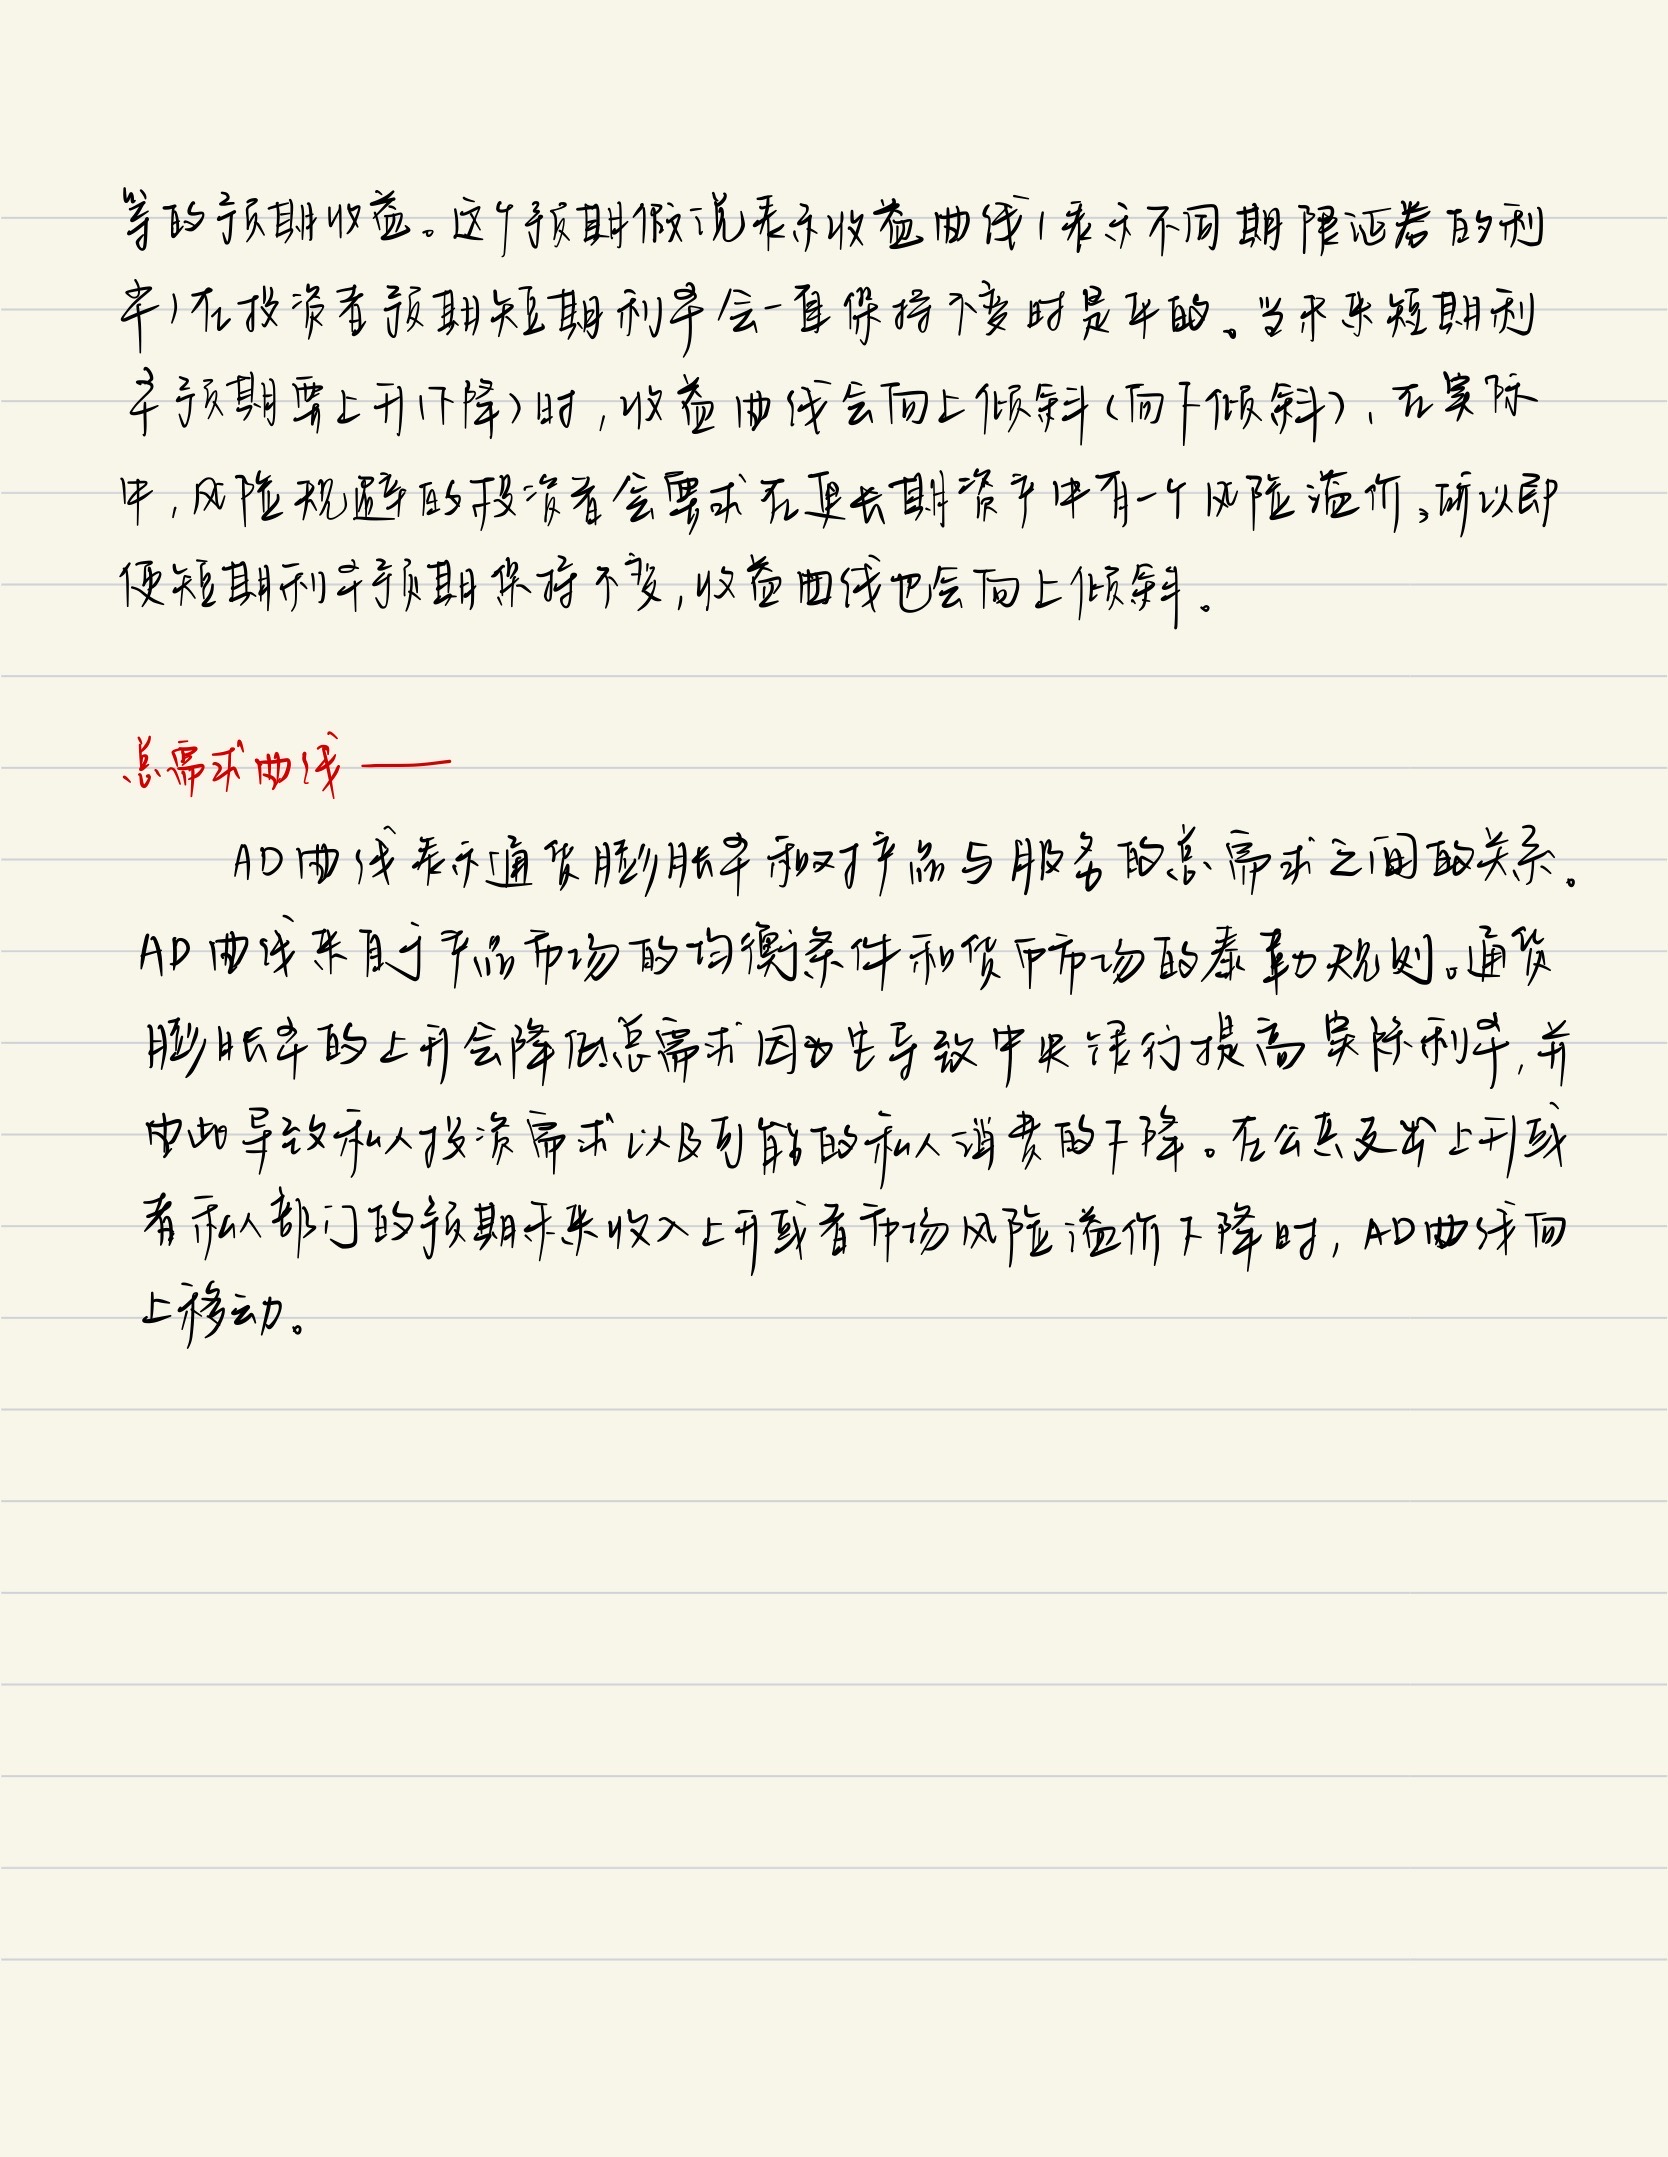 等的预期收益。这个预期假说表示收益曲线(表示不同期限证券的利
率)在投资者预期短期利率会一直保持不变时是平的。当未来短期利
率预期要上升(下降)时,收益曲线会向上倾斜(向下倾斜)、在实际
中,风险规避的投资者会要求在更长期资产中有一个风险溢价,所以即
便短期利率预期保持不变,收益曲线也会向上倾斜。
总需求曲线——
AD曲线表示通货膨胀率和对产品与服务的总需求之间的关系。
AD曲线来自于产品市场的均衡条件和货币市场的泰勒规则。通货
膨胀率的上升会降低总需求因为它导致中央银行提高实际利率,并
由此导致私人投资需求以及可能的私人消费的下降。在公共支出上升或
者私人部门的预期未来收入上升或者市场风险溢价下降时,AD曲线向
上移动。